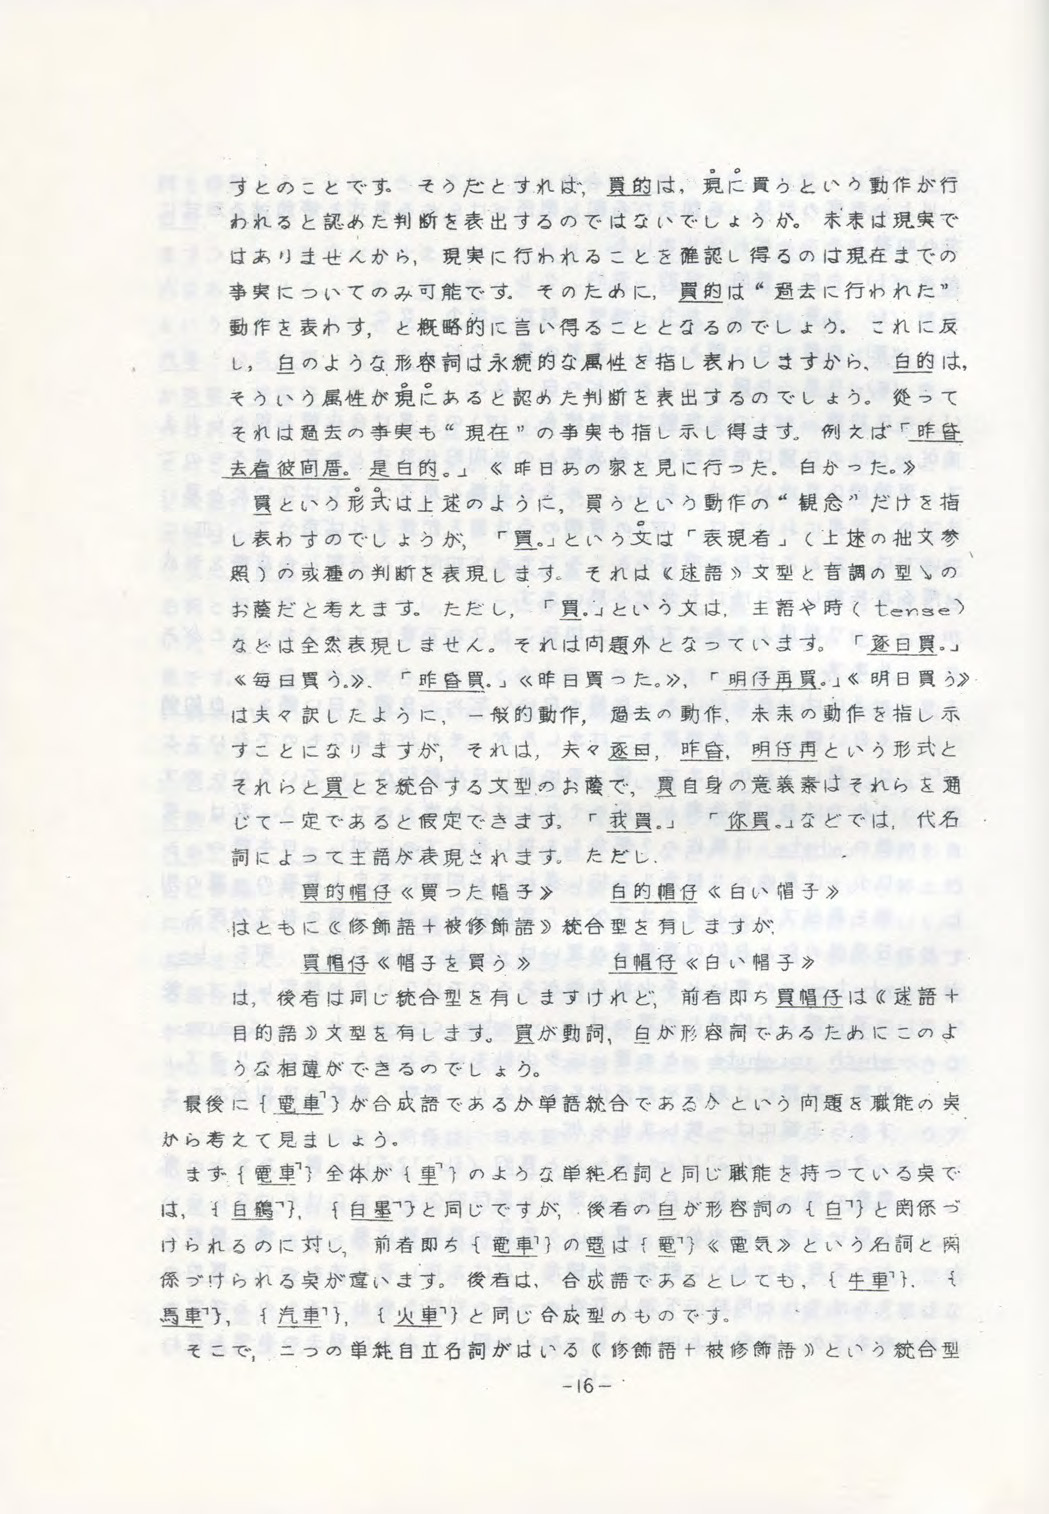 すとのことです。そうだとすれば，買的は，現に買うという動作が行
われると認めた判断を表出するのではないでしょうか。未来は現実で
はありませんから，現実に行われることを確認し得るのは現在までの
事実についてのみ可能です。そのために，買的は“過去に行われた”
動作を表わす，と概略的に言い得ることとなるのでしょう。これに反
し，白のような形容詞は永続的な属性を指し表わしますから，白的は，
そういう属性が現にあると認めた判断を表出するのでしょう。従って
それは過去の事実も“現在”の事実も指し示し得ます。例えば「昨昏
去看彼间厝。是白的。」《昨日あの家を見に行った。白かった。》
買という形式は上述のように，買うという動作の“観念”だけを指
し表わすのでしょうが，「買。」という文は「表現者」（上述の拙文参
照）の或種の判断を表現します。それは《述語》文型と音調の型↘の
お蔭だと考えます。ただし，「買。」という文は，主語や時（tense）
などは全然表現しません。それは问題外となっています。「逐日買。」
《毎日買う。》，「昨昏買。」《昨日買った。》，「明仔再買。」《明日買う》
は夫々訳したように，一般的動作，過去の動作，未来の動作を指し示
すことになりますが，それは，夫々逐日，昨昏，明仔再という形式と
それらと買とを統合する文型のお蔭で，買自身の意義素はそれらを通
じて一定であると仮定できます。「我買。」「你買。」などでは，代名
詞によって主語が表現されます。ただし，
買的帽仔《買った帽子》　白的帽仔《白い帽子》
はともに《修飾語＋被修飾語》統合型を有しますが，
買帽仔《帽子を買う》　白帽仔《白い帽子》
は，後者は同じ統合型を有しますけれど，前者即ち買帽仔は《述語＋
目的語》文型を有します。買が動詞，白が形容詞であるためにこのよ
うな相違ができるのでしょう。
最後に｛電車˥｝が合成語であるか単語統合であるかという问題を職能の点
から考えて見ましょう。
まず｛電車˥｝全体が｛車˥｝のような単純名詞と同じ職能を持っている点で
は，｛白鶴˥｝，｛白墨˥｝と同じですが，後者の白が形容詞の｛白˥｝と関係づ
けられるのに対し，前者即ち｛電車˥｝の電は｛電˥｝《電気》という名詞と関
係づけられる点が違います。後者は，合成語であるとしても，｛牛車˥｝，｛
馬車˥｝，｛汽車˥｝，｛火車˥｝と同じ合成型のものです。
そこで，二つの単純自立名詞がはいる《修飾語＋被修飾語》という統合型
-16-